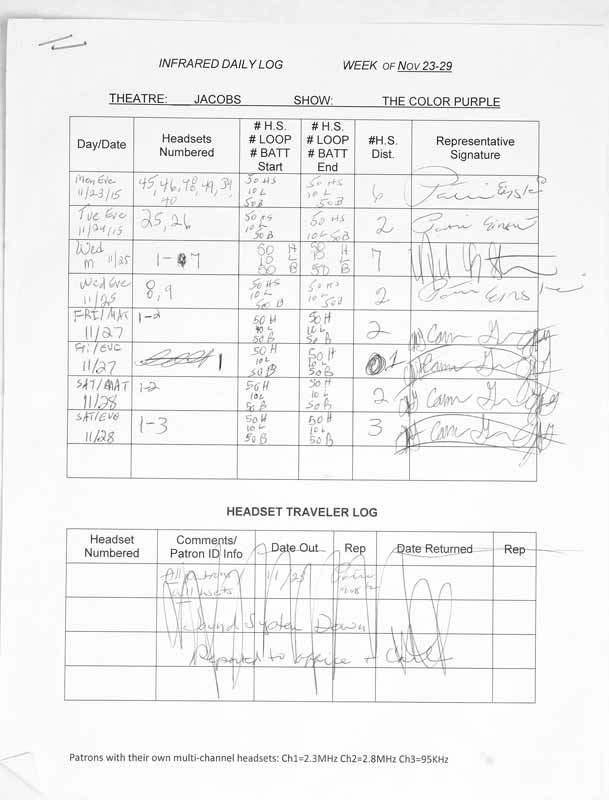 INFRARED DAILY LOG WEEK OF NOV 23-29
THEATRE: JACOBS SHOW: THE COLOR PURPLE
Day/Date Headsets Numbered # H.S. # LOOP # BATT Start # H.S. # LOOP # BATT End #H.S. Dist. Representative Signature
Mon Eve 11/23/15 45, 46, 48, 49, 39, 40 50 HS 10 L 50B 50 HS 10 L 50B 6
Tue Eve 11/24/15 25, 26 50 HS 10 L 50B 50 HS 10 L 50B 2
Wed m 11/25 1-7 50 H 10 L 50 B 50 H 10 L 50 B 7
Wed Eve 11/25 8, 9 50 HS 10 L 50B 50 HS 10 L 50B 2
FRI/MAT 11/27 1-2 50 H 10 L 50 B 50 H 10 L 50 B 2
Fri/EVE 11/27 1 50 H 10 L 50 B 50 H 10 L 50 B 1
SAT/MAT 11/28 1-2 50 H 10L 50 B 50 H 10L 50 B 2
SAT/EVE 11/28 1-3 50 H 10 L 50 B 50 H 10 L 50 B 3
HEADSET TRAVELER LOG
Headset Numbered Comments/ Patron ID Info Date Out Rep Date Returned Rep
Sound System Down
Reported to office +
Patrons with their own multi-channel headsets: Ch1=2.3MHz Ch2=2.8MHz Ch3=95KHz